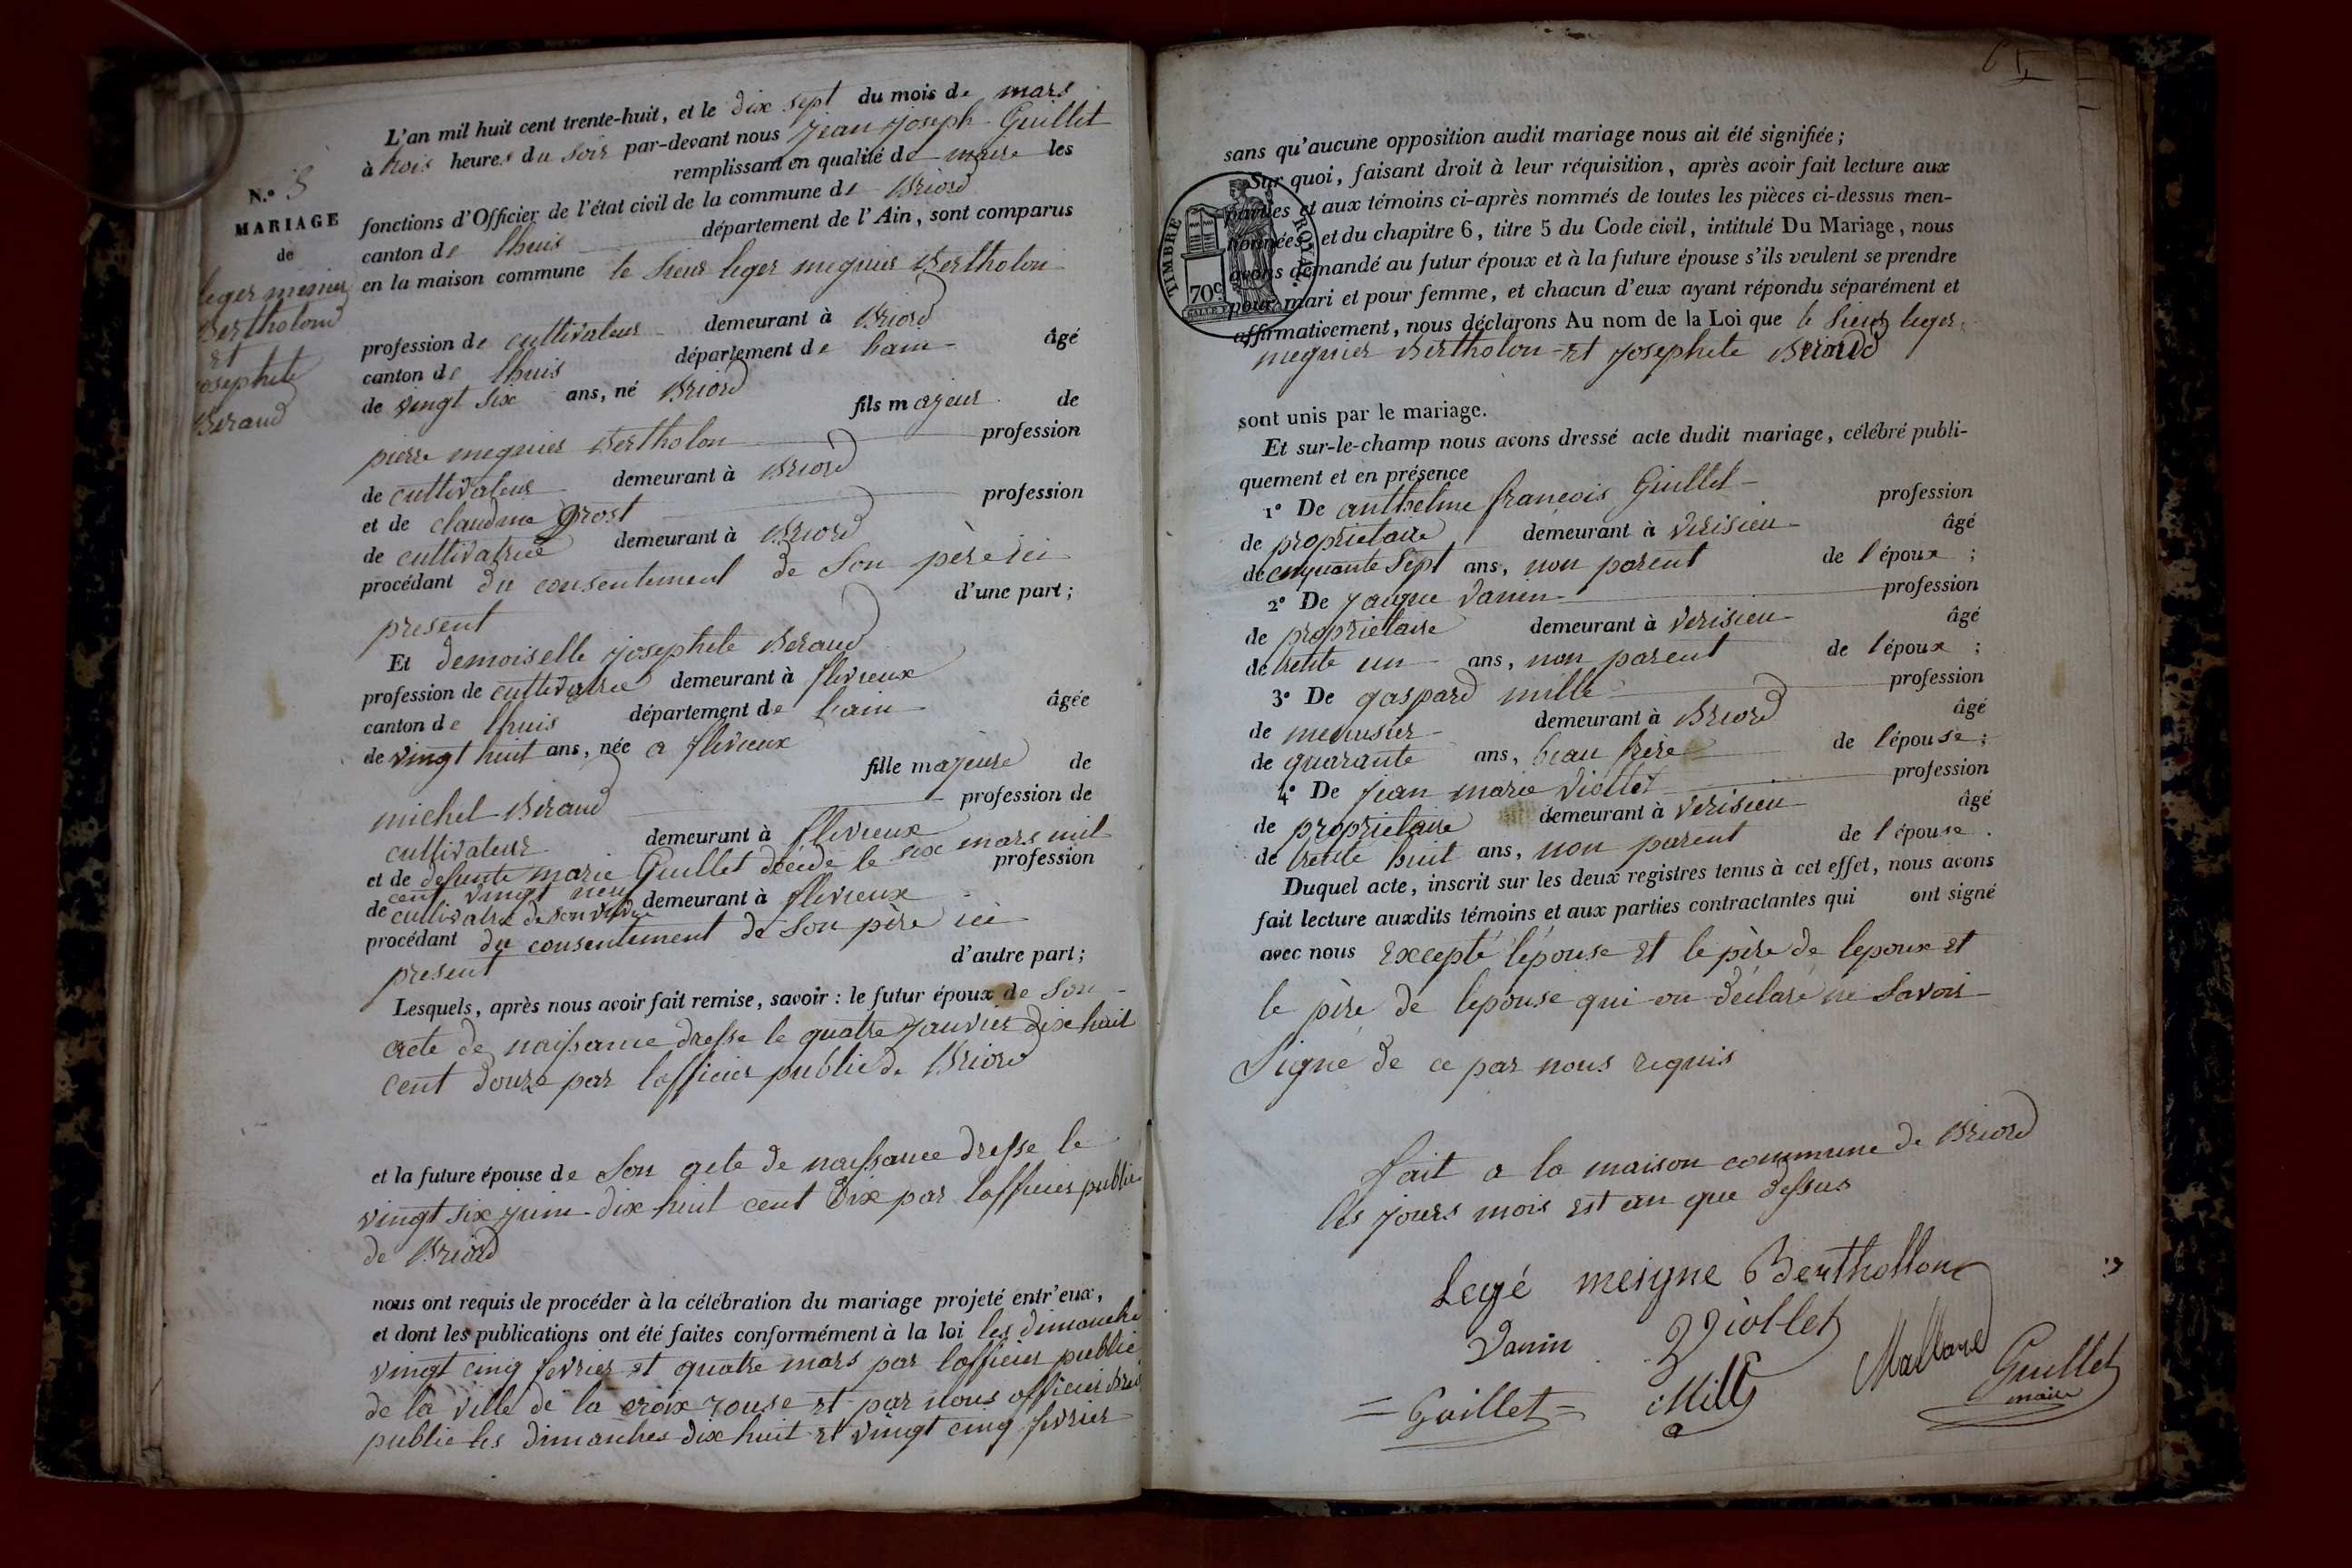 L'an mil huit cent trente-huit, et le dix sept du mois de mars
à trois heures du soir par-devant nous jean joseph Guillet
remplissant en qualité de maire les
fonctions d'Officier de l'état civil de la commune de Briord
canton de lhuis département de l'Ain, sont comparus
en la maison commune le sieur leger megnier Bertholon
N.º
MARIAGE
de
leger menier
Bertholond
et
josephete
Beraud
profession de cultivateur demeurant à Briord
canton de lhuis département de lain âgé
de vingt six ans, né Briord
fils majeur de
pierre megnier Bertholon profession
de cultivateur demeurant à Briord
et de claudine grost profession
de cultivatrice demeurant à Briord
procédant du consentement de son père ici
present d'une part;
Et demoiselle josephete Beraud
profession de cultivatrice demeurant à flevieux
canton de lhuis département de lain âgée
de vingt huit ans, née a flevieux
fille majeure de
michel Beraud profession de
cultivateur demeurant à flevieux
et de defunte marie Guillet décéde le six mars mil
cent vingt neuf profession
de cultivatrice de son vivant demeurant à flevieux
procédant du consentement de son père ici
present d'autre part;
Lesquels, après nous avoir fait remise, savoir : le futur époux de son
acte de naissance dresse le quatre janvier dix huit
cent douze par lofficier public de Briord
et la future épouse de son acte de naissance dresse le
vingt six juin dix huit cent dix par lofficier public
de Briord
nous ont requis de procéder à la célébration du mariage projeté entr'eux,
et dont les publications ont été faites conformément à la loi les dimanche
vingt cinq fevrier et quatre mars par lofficier public
de la ville de la croix rouse et par nous officier
public les dimanches dix huit et vingt cinq fevrier
sans qu'aucune opposition audit mariage nous ait été signifiée;
Sur quoi, faisant droit à leur réquisition, après avoir fait lecture aux
parties et aux témoins ci-après nommés de toutes les pièces ci-dessus men-
tionnées, et du chapitre 6, titre 5 du Code civil, intitulé Du Mariage, nous
avons demandé au futur époux et à la future épouse s'ils veulent se prendre
pour mari et pour femme, et chacun d'eux ayant répondu séparément et
affirmativement, nous déclarons Au nom de la Loi que le sieur leger
megnier Bertholon et josephete Beraud
TIMBRE ROYAL.
70c.
sont unis par le mariage.
Et sur-le-champ nous avons dressé acte dudit mariage, célébré publi-
quement et en présence
1º De anthelme francois Guillet profession
de proprietaire demeurant à Verisieu âgé
de cinquante sept ans, non parent de l'époux;
2º De jaque vanin profession
de proprietaire demeurant à verisieu âgé
de trente un ans, non parent de l'époux;
3º De gaspard mille profession
de menusier demeurant à Briord âgé
de quarante ans, beau frère de lépouse;
4º De jean marie viollet profession
de proprietaire demeurant à verisieu âgé
de trente huit ans, non parent de l'épouse.
Duquel acte, inscrit sur les deux registres tenus à cet effet, nous avons
fait lecture auxdits témoins et aux parties contractantes qui ont signé
avec nous excepté l'épouse et le père de lepoux et
le père de lepouse qui on déclaré ne savoir
signé de ce par nous requis
fait a la maison commune de Briord
les jours mois est an que dessus
Legé meigne Berthollon
Vanin Viollet
Mallard
Guillet
maire
Guillet Mille